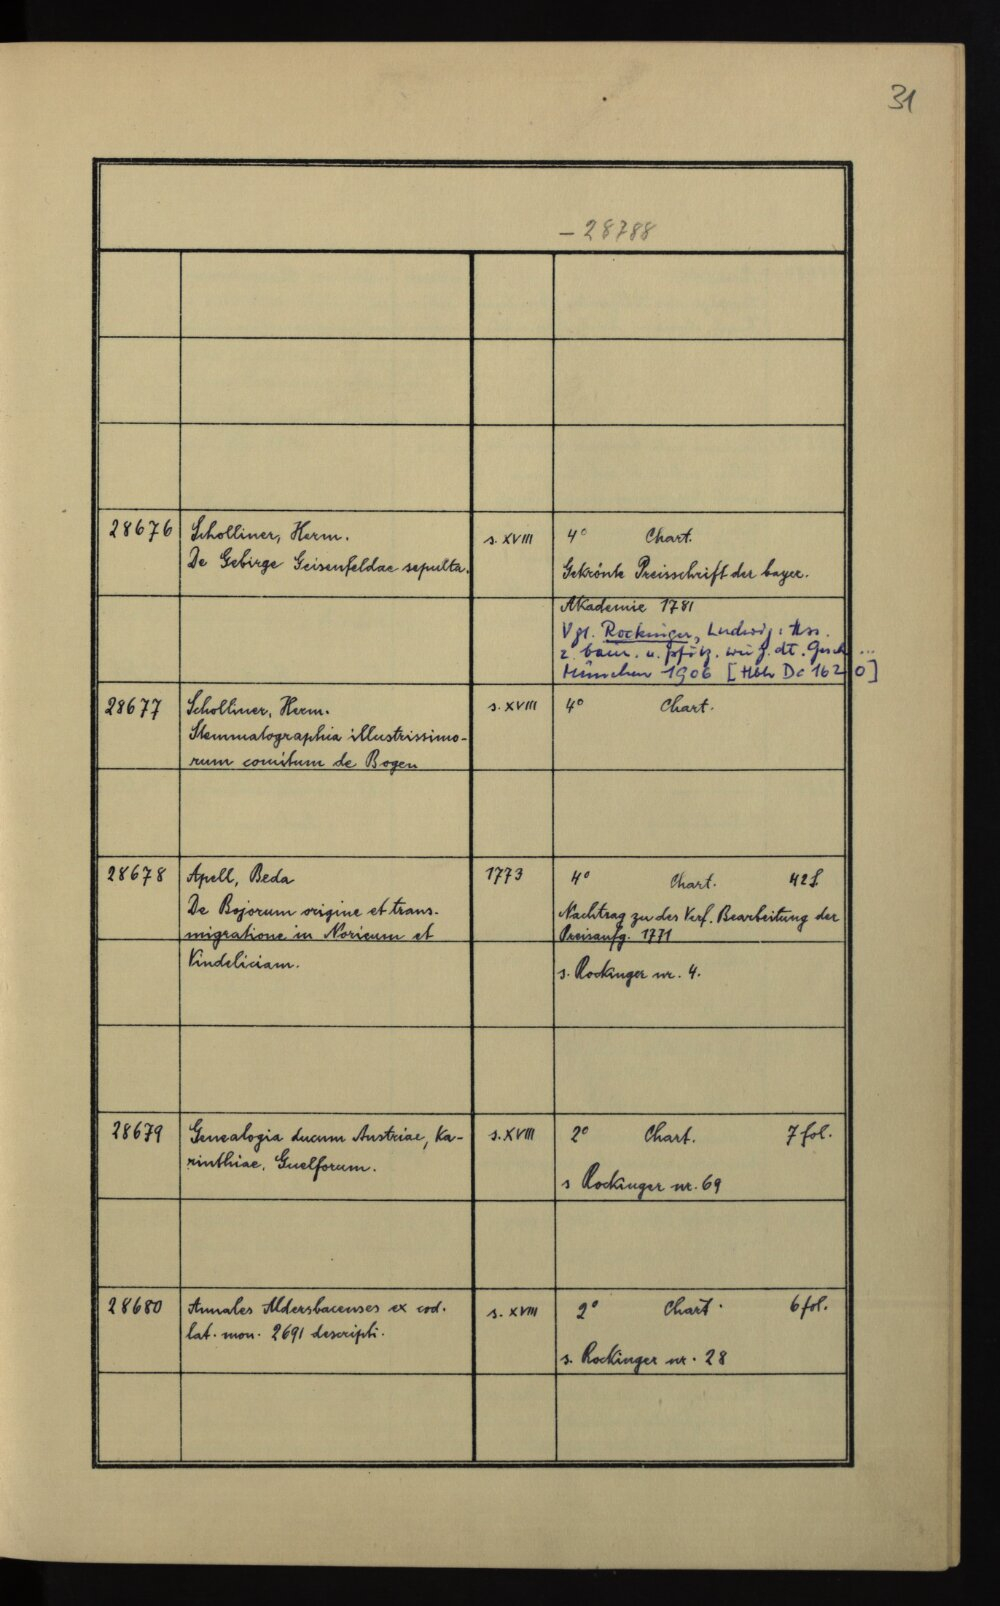 31
– 28788
28676
Scholliner, Herm.
De Gebirge Geisenfeldae sepulta.
s. XVIII
4° Chart.
Gekrönte Preisschrift der bayer.
Akademie 1781
Vgl. Rockinger, Ludwig: Hss.
z. baier. u. pfälz. wie z. dt. Gesch ...
München 1906 [Hbh Dc 1620]
28677
Scholliner, Herm.
Stemmatographia illustrissimo-
rum comitum de Bogen
s. XVIII
4° Chart.
28678
Apell, Beda
De Bojorum origine et trans-
migratione in Noricum et
Vindeliciam.
1773
4° Chart. 42 f
Nachtrag zu des Verf. Bearbeitung der
Preisaufg. 1771
s. Rockinger nr. 4.
28679
Genealogia ducum Austriae, Ka-
rinthiae, Guelforum.
s. XVIII
2° Chart. 7 fol.
s Rockinger nr. 69
28680
Annales Aldersbacenses ex cod.
lat. mon. 2691 descripti.
s. XVIII
2° Chart. 6 fol.
s. Rockinger nr. 28